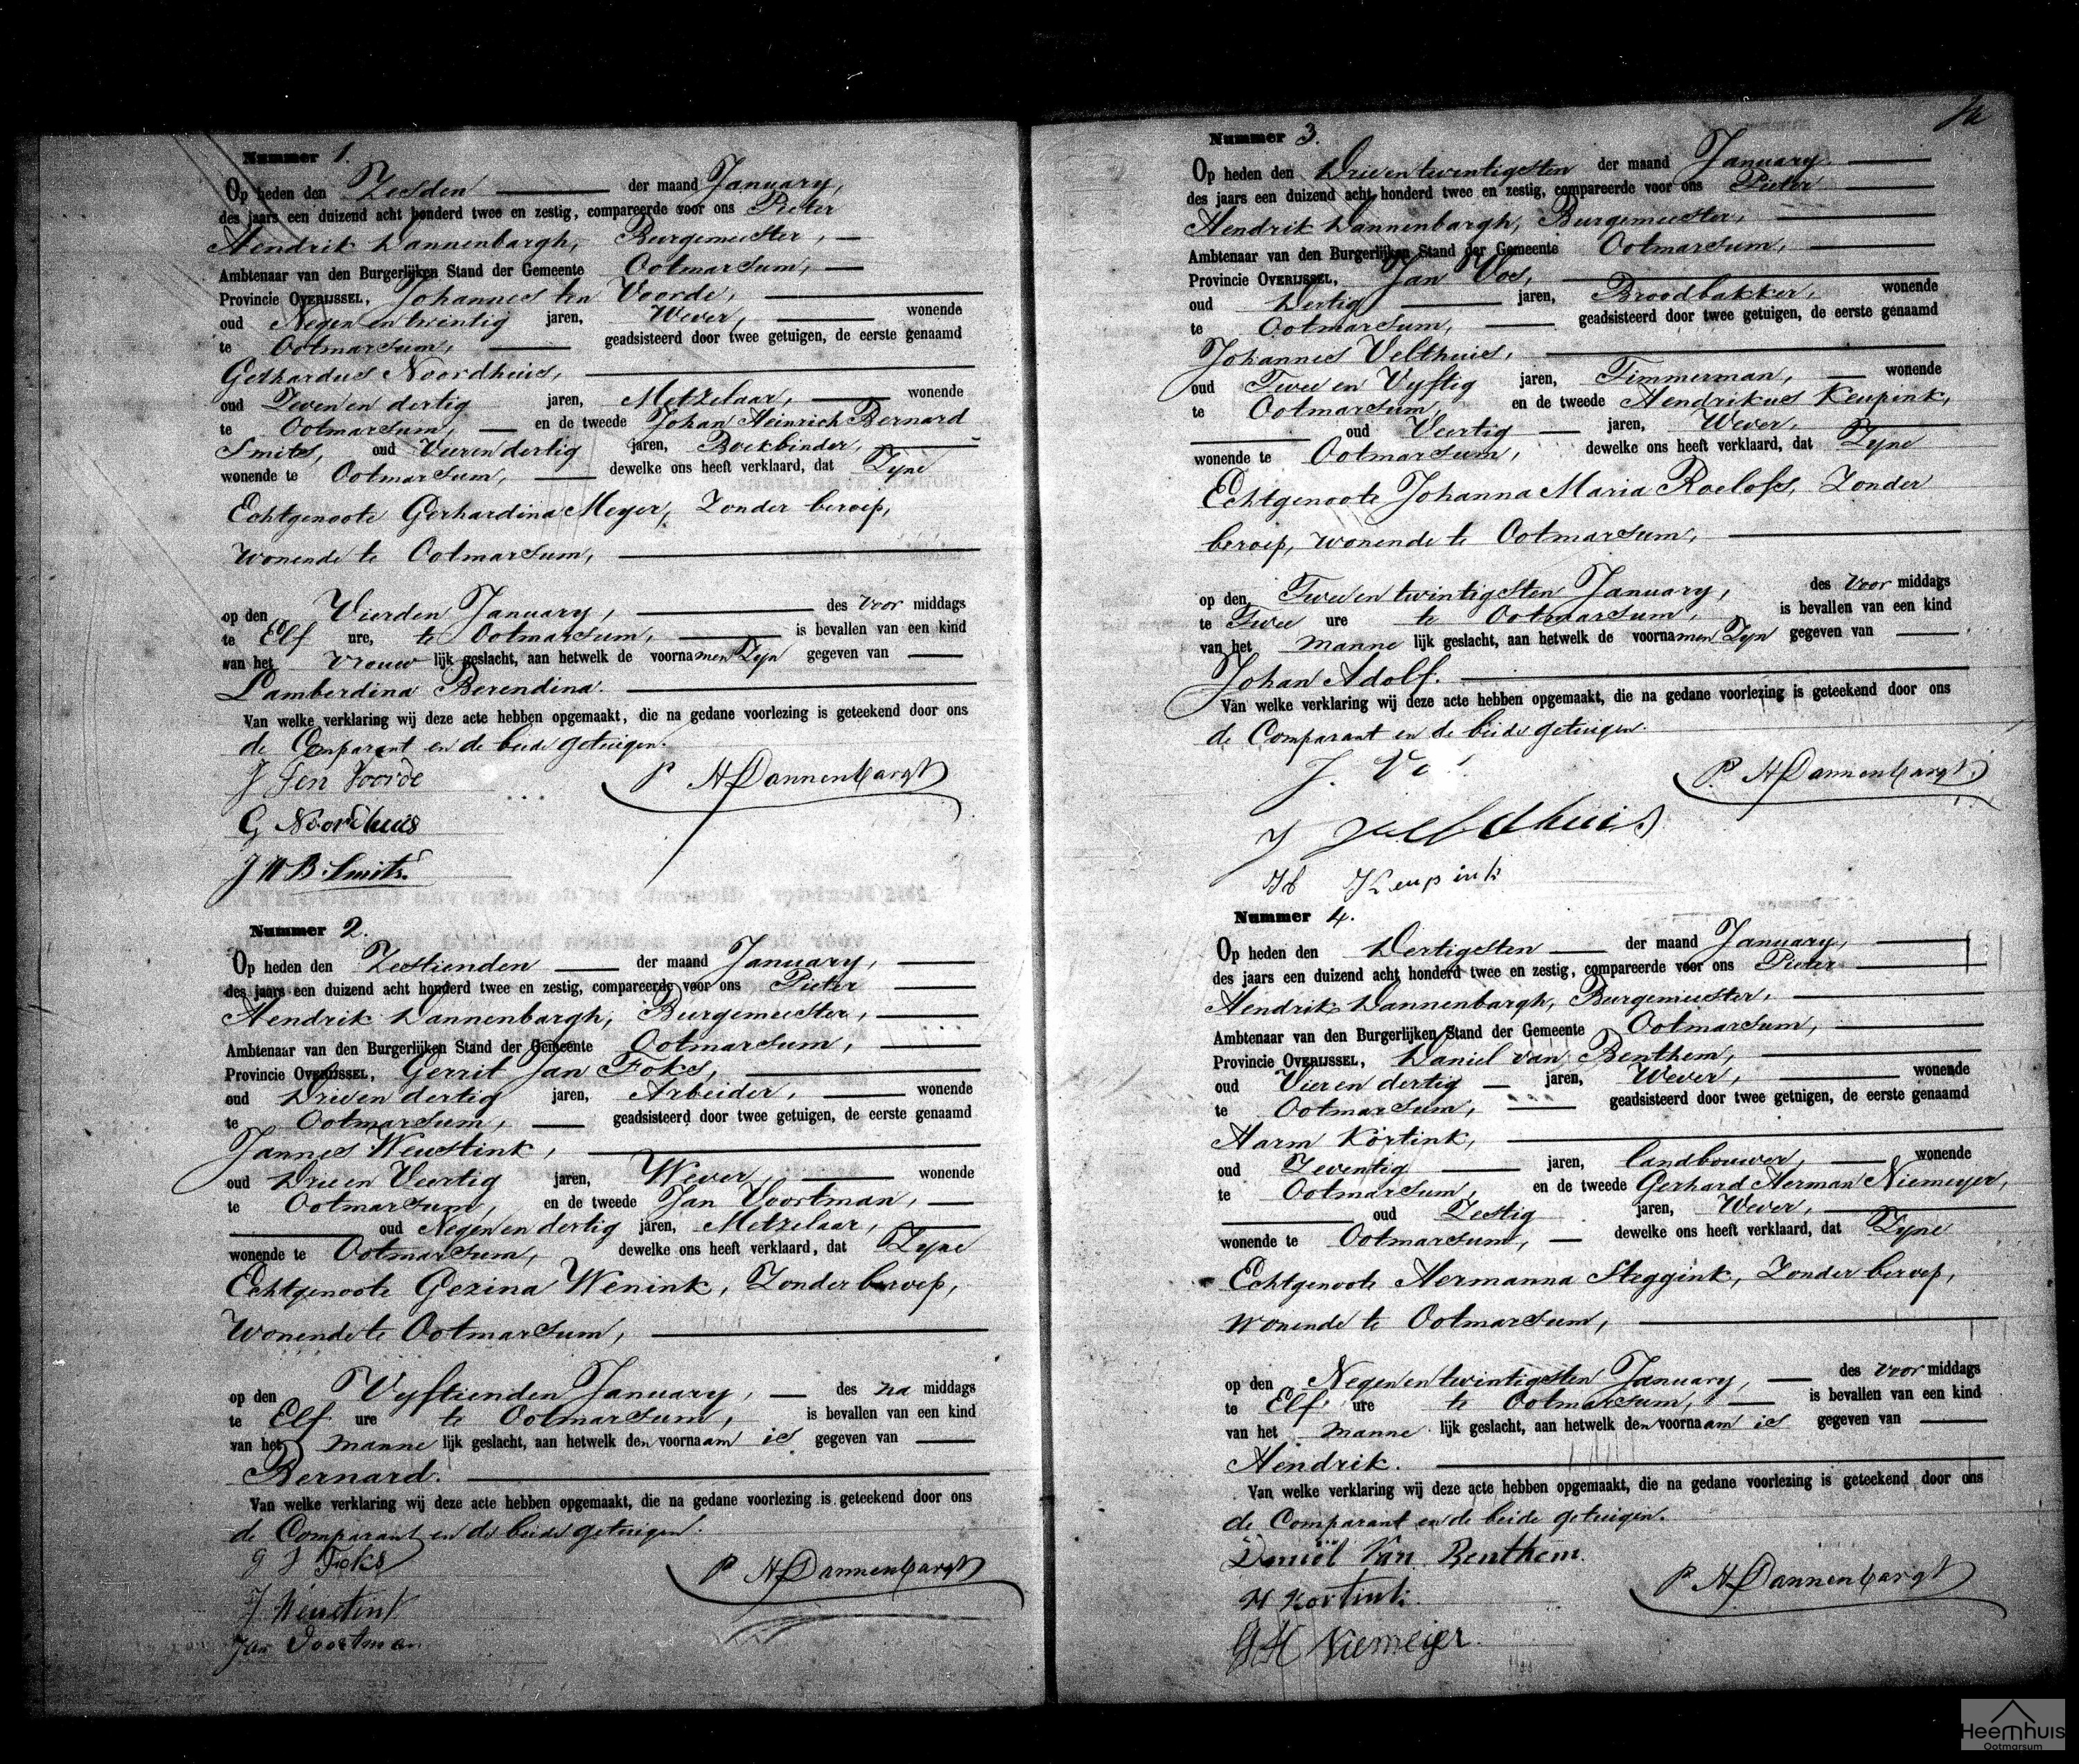 Nummer 1.
Op heden den Zesden der maand January,
des jaars een duizend acht honderd twee en zestig, compareerde voor ons Pieter
Hendrik Dannenbargh, Burgemeester,
Ambtenaar van den Burgerlijken Stand der Gemeente Ootmarsum,
Provincie OVERIJSSEL, Johannes ten Voorde,
oud Negen en twintig jaren, Wever, wonende
te Ootmarsum, geadsisteerd door twee getuigen, de eerste genaamd
Gerhardus Noordhuis,
oud Zeven en dertig jaren, Metzelaar, wonende
te Ootmarsum, en de tweede Johan Heinrich Bernard
Smits, oud Vier en dertig jaren, Boekbinder,
wonende te Ootmarsum, dewelke ons heeft verklaard, dat Zyne
Echtgenoote Gerhardina Meyer, Zonder beroep,
wonende te Ootmarsum,
op den Vierden January, des voor middags
te Elf ure, te Ootmarsum, is bevallen van een kind
van het vrouw lijk geslacht, aan hetwelk de voornamen Zyn gegeven van
Lamberdina Berendina.
Van welke verklaring wij deze acte hebben opgemaakt, die na gedane voorlezing is geteekend door ons
de Comparant en de beide getuigen.
J ten Voorde
P H Dannenbargh
G Noordhuis
J H B Smits
Nummer 2.
Op heden den Zestienden der maand January,
des jaars een duizend acht honderd twee en zestig, compareerde voor ons Pieter
Hendrik Dannenbargh, Burgemeester,
Ambtenaar van den Burgerlijken Stand der Gemeente Ootmarsum,
Provincie OVERIJSSEL, Gerrit Jan Foks,
oud Drie en dertig jaren, Arbeider, wonende
te Ootmarsum, geadsisteerd door twee getuigen, de eerste genaamd
Jannes Weustink,
oud Drie en Veertig jaren, Wever, wonende
te Ootmarsum, en de tweede Jan Voortman,
oud Negen en dertig jaren, Metzelaar,
wonende te Ootmarsum, dewelke ons heeft verklaard, dat Zyne
Echtgenoote Gezina Wenink, Zonder beroep,
Wonende te Ootmarsum,
op den Vyftienden January, des na middags
te Elf ure te Ootmarsum, is bevallen van een kind
van het manne lijk geslacht, aan hetwelk den voornaam is gegeven van
Bernard.
Van welke verklaring wij deze acte hebben opgemaakt, die na gedane voorlezing is geteekend door ons
de Comparant en de beide getuigen.
G J Foks
P H Dannenbargh
J Weustink
Jan Voortman
Nummer 3.
Op heden den Drieentwintigsten der maand January
des jaars een duizend acht honderd twee en zestig, compareerde voor ons Pieter
Hendrik Dannenbargh, Burgemeester,
Ambtenaar van den Burgerlijken Stand der Gemeente Ootmarsum,
Provincie OVERIJSSEL, Jan Vos,
oud Dertig jaren, Broodbakker, wonende
te Ootmarsum, geadsisteerd door twee getuigen, de eerste genaamd
Johannes Velthuis,
oud Twee en Vyftig jaren, Timmerman, wonende
te Ootmarsum, en de tweede Hendrikus Keupink,
oud Veertig jaren, Wever,
wonende te Ootmarsum, dewelke ons heeft verklaard, dat Zyne
Echtgenoote Johanna Maria Roelofs, Zonder
beroep, wonende te Ootmarsum,
op den Tweeentwintigsten January, des voor middags
te Twee ure te Ootmarsum, is bevallen van een kind
van het manne lijk geslacht, aan hetwelk de voornamen Zyn gegeven van
Johan Adolf.
Van welke verklaring wij deze acte hebben opgemaakt, die na gedane voorlezing is geteekend door ons
de Comparant en de beide getuigen.
J.
P. H Dannenbargh
J Veldhuis
H Keupink
Nummer 4.
Op heden den Dertigsten der maand January,
des jaars een duizend acht honderd twee en zestig, compareerde voor ons Pieter
Hendrik Dannenbargh, Burgemeester,
Ambtenaar van den Burgerlijken Stand der Gemeente Ootmarsum,
Provincie OVERIJSSEL, Daniel van Benthem,
oud Vier en dertig jaren, Wever, wonende
te Ootmarsum, geadsisteerd door twee getuigen, de eerste genaamd
Harm Körtink,
oud Zeventig jaren, landbouwer, wonende
te Ootmarsum, en de tweede Gerhard Herman Niemeyer,
oud Zestig jaren, Wever,
wonende te Ootmarsum, dewelke ons heeft verklaard, dat Zyne
Echtgenoote Hermanna Steggink, Zonder beroep,
wonende te Ootmarsum,
op den Negenentwintigsten January, des voor middags
te Elf ure te Ootmarsum, is bevallen van een kind
van het manne lijk geslacht, aan hetwelk den voornaam is gegeven van
Hendrik.
Van welke verklaring wij deze acte hebben opgemaakt, die na gedane voorlezing is geteekend door ons
de Comparant en de beide getuigen.
Daniël Van Benthem
P H Dannenbargh
H Kortink
G H Niemeijer
Heemhuis
Ootmarsum